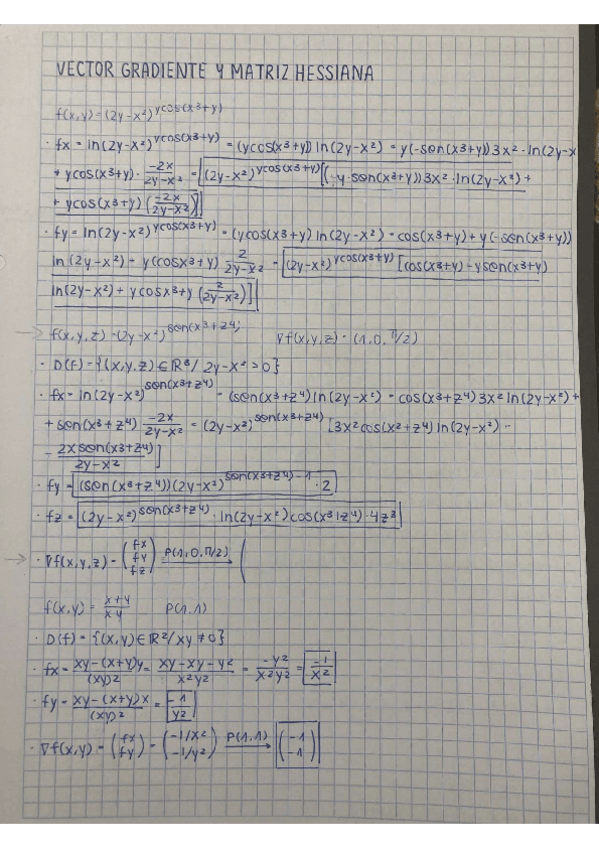 VECTOR GRADIENTE Y MATRIZ HESSIANA
f(x,y)=(2y-x²)^ycos(x³+y)
· fx = ln(2y-x²)^ycos(x³+y) = (ycos(x³+y)) ln(2y-x²) = y(-sen(x³+y))3x²·ln(2y-x
+ ycos(x³+y)· -2x/2y-x² = (2y-x²)^ycos(x³+y)[(-y·sen(x³+y))3x²·ln(2y-x²)+
+ ycos(x³+y)(-2x/2y-x²)]
· fy = ln(2y-x²)^ycos(x³+y) = (ycos(x³+y) ln(2y-x²) = cos(x³+y)+y(-sen(x³+y))
ln(2y-x²) + y(cosx³+y) 2/2y-x² = (2y-x²)^ycos(x³+y) [cos(x³+y)-ysen(x³+y)
ln(2y-x²)+ycosx³+y(2/2y-x²)]
→ f(x,y,z)=(2y-x²)^sen(x³+z4) ∇f(x,y,z)=(1,0,π/2)
· D(f)={(x,y,z)∈R³/ 2y-x²>0}
· fx = ln(2y-x²)^sen(x³+z4) = (sen(x³+z4)ln(2y-x²) = cos(x³+z4)3x²ln(2y-x²)+
+ sen(x³+z4) -2x/2y-x² = (2y-x²)^sen(x³+z4) [3x²cos(x²+z4)ln(2y-x²) -
- 2xsen(x3+z4)/2y-x² ]
· fy = (sen(x³+z4))(2y-x²)^sen(x3+z4)-1 · 2
· fz = (2y-x²)^sen(x3+z4)·ln(2y-x²)cos(x³+z4)·4z³
→ · ∇f(x,y,z) = (fx fy fz) P(1,0,π/2) → (
f(x,y) = x+y/xy P(1,1)
· D(f) = {(x,y)∈R²/xy≠0}
· fx = xy-(x+y)y/(xy)² = xy-xy-y²/x²y² = -y²/x²y² = -1/x²
· fy = xy-(x+y)x/(xy)² = -1/y²
· ∇f(x,y) = (fx fy) = (-1/x² -1/y²) P(1,1) → (-1 -1)